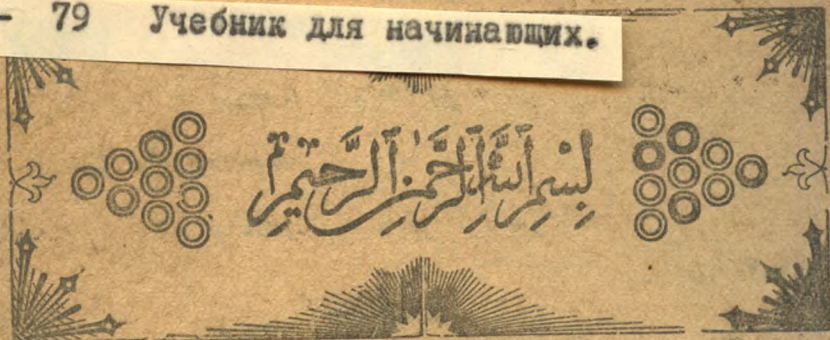 - 79 Учебник для начинающих.
بِسْمِ اللّٰهِ الرَّحْمٰنِ الرَّحِيمِ